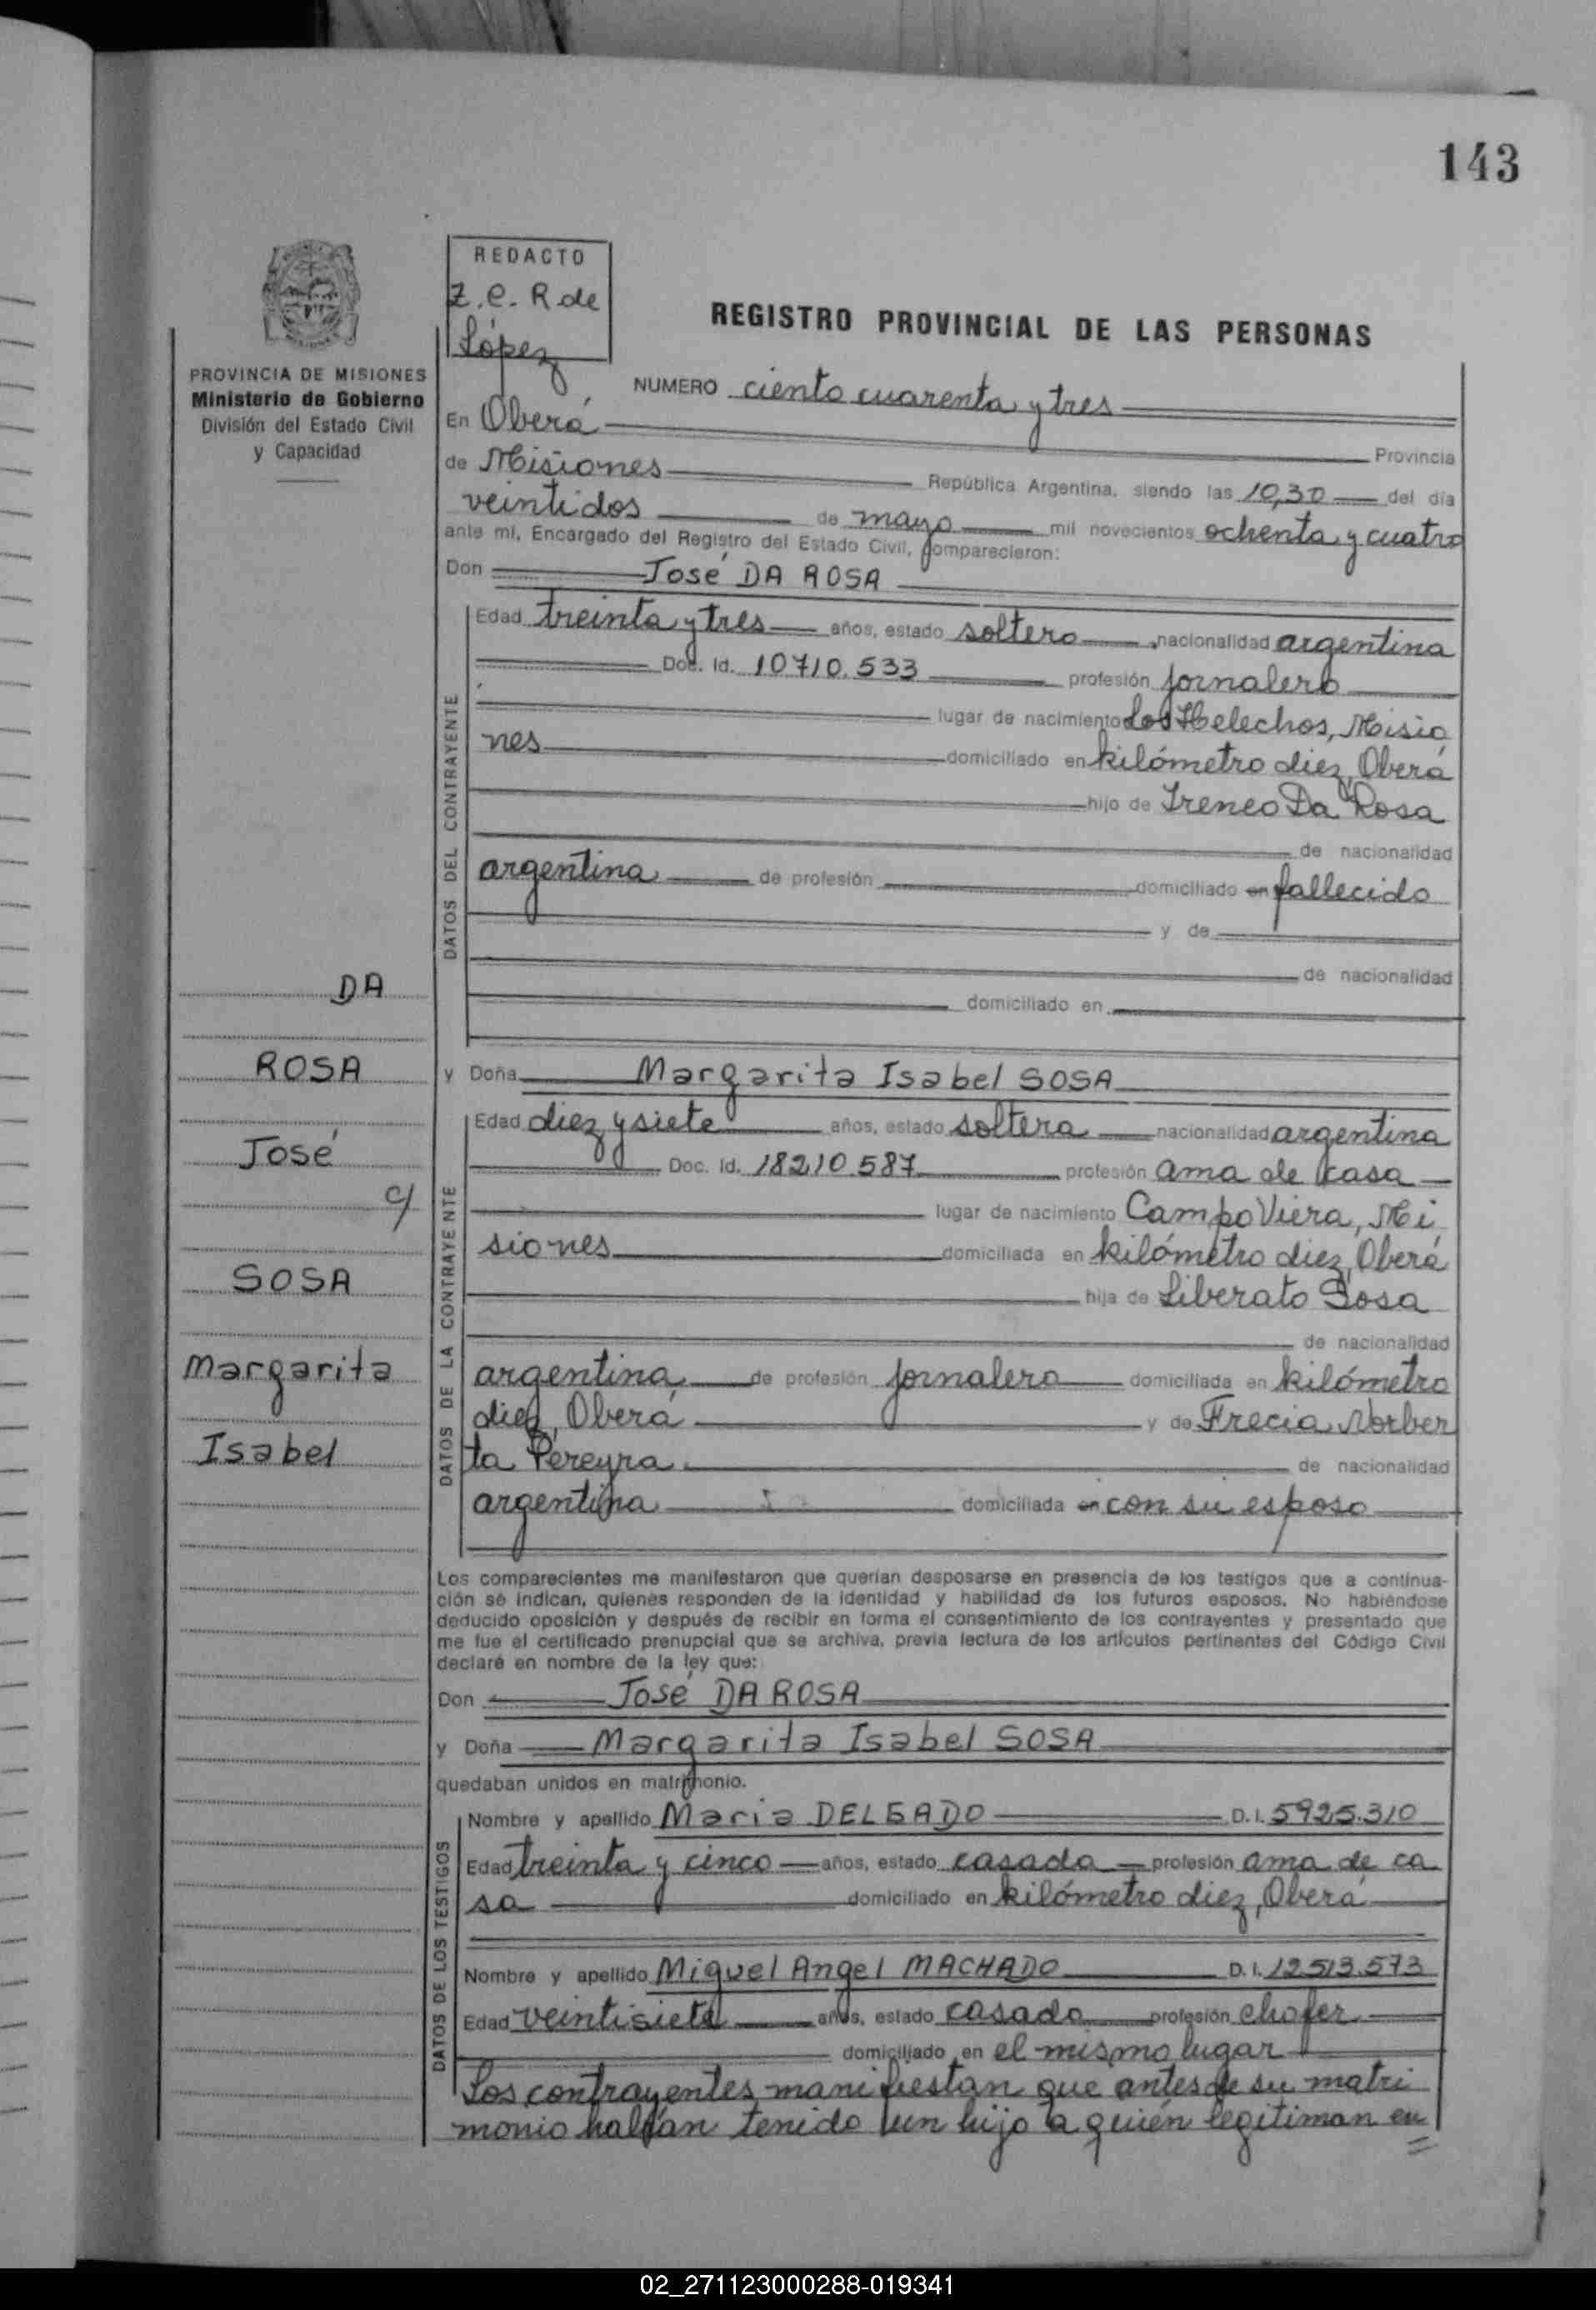 143
REDACTO
Z.C. R de
López
REGISTRO PROVINCIAL DE LAS PERSONAS
PROVINCIA DE MISIONES
Ministerio de Gobierno
División del Estado Civil
y Capacidad
NUMERO ciento cuarenta y tres
En Oberá Provincia
de Misiones República Argentina, siendo las 10,30 del día
veintidos de mayo mil novecientos ochenta y cuatro
ante mí, Encargado del Registro del Estado Civil, comparecieron:
Don José DA ROSA
DATOS DEL CONTRAYENTE
Edad treinta y tres años, estado soltero nacionalidad argentina
Doc. Id. 10710.533 profesión jornalero
lugar de nacimiento Los Helechos, Misio
nes domiciliado en kilómetro diez, Oberá
hijo de Ireneo Da Rosa
de nacionalidad
argentina de profesión domiciliado en fallecido
y de
de nacionalidad
domiciliado en
DA
ROSA
José
c/
SOSA
Margarita
Isabel
y Doña Margarita Isabel SOSA
DATOS DE LA CONTRAYENTE
Edad diez y siete años, estado soltera nacionalidad argentina
Doc. Id. 18210.587 profesión ama de casa
lugar de nacimiento Campo Viera, Mi
siones domiciliada en kilómetro diez, Oberá
hija de Liberato Sosa
de nacionalidad
argentina de profesión jornalero domiciliada en kilómetro
diez, Oberá y de Frecia Norber
ta Pereyra de nacionalidad
argentina domiciliada en con su esposo
Los comparecientes me manifestaron que querían desposarse en presencia de los testigos que a continua-
ción se indican, quienes responden de la identidad y habilidad de los futuros esposos. No habiéndose
deducido oposición y después de recibir en forma el consentimiento de los contrayentes y presentado que
me fue el certificado prenupcial que se archiva, previa lectura de los artículos pertinentes del Código Civil
declaré en nombre de la ley que:
Don José DA ROSA
y Doña Margarita Isabel SOSA
quedaban unidos en matrimonio.
DATOS DE LOS TESTIGOS
Nombre y apellido Maria DELGADO D.I. 5925.310
Edad treinta y cinco años, estado casada profesión ama de ca
sa domiciliado en kilómetro diez, Oberá
Nombre y apellido Miguel Angel MACHADO D.I. 12513.573
Edad veintisiete años, estado casado profesión chofer
domiciliado en el mismo lugar
Los contrayentes manifiestan que antes de su matri
monio habían tenido un hijo a quién legitiman en
02_271123000288-019341